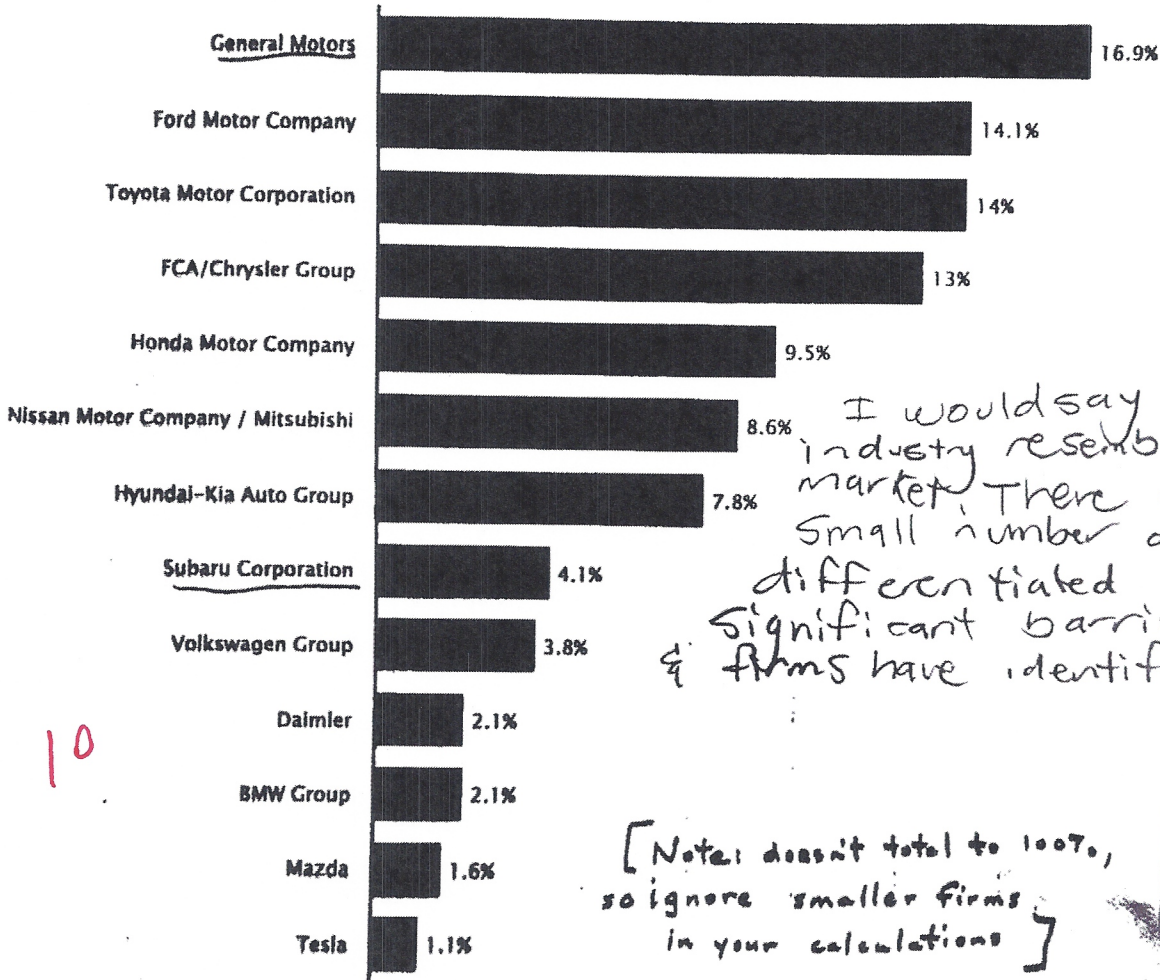 General Motors 16.9%
Ford Motor Company 14.1%
Toyota Motor Corporation 14%
FCA/Chrysler Group 13%
Honda Motor Company 9.5%
Nissan Motor Company / Mitsubishi 8.6%
Hyundai-Kia Auto Group 7.8%
Subaru Corporation 4.1%
Volkswagen Group 3.8%
Daimler 2.1%
BMW Group 2.1%
Mazda 1.6%
Tesla 1.1%
I would say
industry resemb
market. There
small number
differentiated
significant barri
& firms have identif
10
[Note: doesn't total to 100%,
so ignore smaller firms
in your calculations]